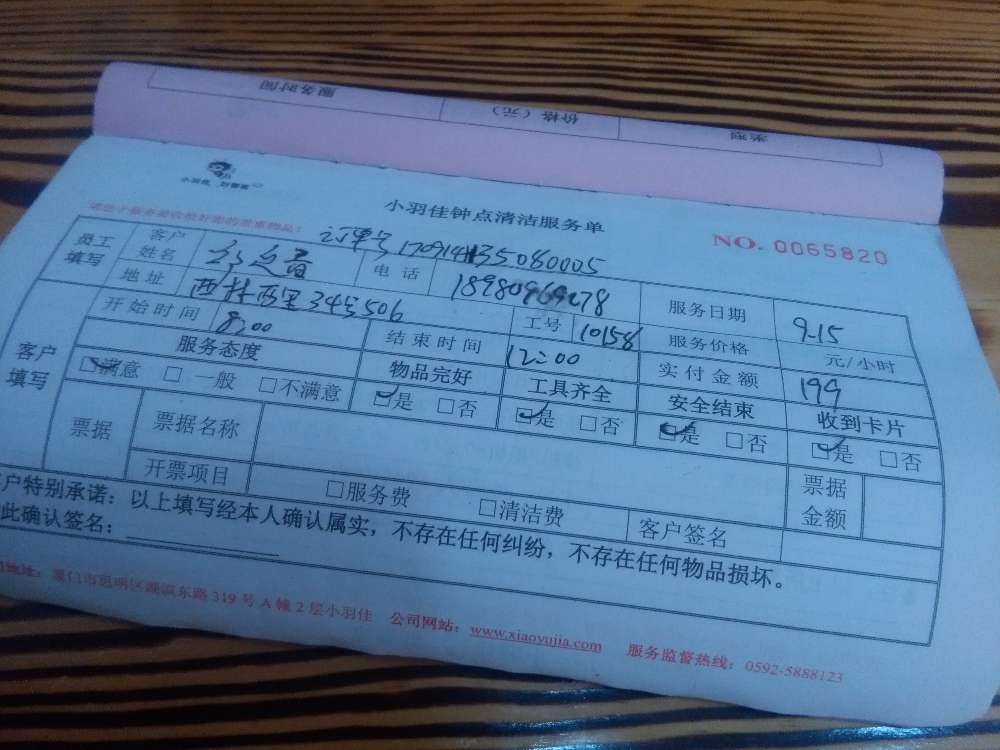 服务时间
价格（元）
类型
小羽佳
小羽佳钟点清洁服务单
NO. 0065820
订单号 170914135080005
员工填写 客户姓名 电话 服务日期 9.15
地址 西林西里34号506 工号 10158 服务价格 元/小时
开始时间 8:00 结束时间 12:00 实付金额 199
客户填写 服务态度 物品完好 工具齐全 安全结束 收到卡片
☑满意 □一般 □不满意 ☑是 □否 ☑是 □否 ☑是 □否 ☑是 □否
票据 票据名称 票据金额
开票项目 □服务费 □清洁费 客户签名
户特别承诺：以上填写经本人确认属实，不存在任何纠纷，不存在任何物品损坏。
此确认签名：
地址：厦门市思明区湖滨东路319号A幢2层小羽佳 公司网站：www.xiaoyujia.com 服务监督热线：0592-5888123